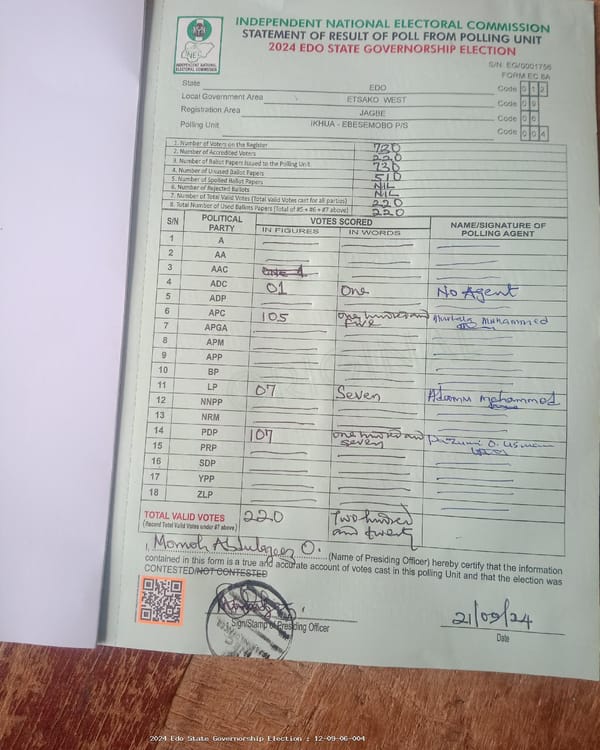 INDEPENDENT NATIONAL ELECTORAL COMMISSION
STATEMENT OF RESULT OF POLL FROM POLLING UNIT
2024 EDO STATE GOVERNORSHIP ELECTION
INDEPENDENT NATIONAL ELECTORAL COMMISSION
S/N: EG/0001756
FORM EC 8A
State EDO Code 0 1 2
Local Government Area ETSAKO WEST Code 0 9
Registration Area JAGBE Code 0 6
Polling Unit IKHUA - EBESEMOBO P/S Code 0 0 4
1. Number of Voters on the Register 730
2. Number of Accredited Voters 220
3. Number of Ballot Papers Issued to the Polling Unit 730
4. Number of Unused Ballot Papers 510
5. Number of Spoiled Ballot Papers NIL
6. Number of Rejected Ballots NIL
7. Number of Total Valid Votes (Total Valid Votes cast for all parties) 220
8. Total Number of Used Ballots Papers (Total of #5 + #6 + #7 above) 220
S/N POLITICAL PARTY VOTES SCORED NAME/SIGNATURE OF POLLING AGENT
IN FIGURES IN WORDS
1 A
2 AA
3 AAC
4 ADC 01 One No Agent
5 ADP
6 APC 105 One hundred and Five Muhammed
7 APGA
8 APM
9 APP
10 BP
11 LP 07 Seven Adamu Mohammed
12 NNPP
13 NRM
14 PDP 107 One hundred and seven O. Usman
15 PRP
16 SDP
17 YPP
18 ZLP
TOTAL VALID VOTES 220 Two hundred and twenty
(Record Total Valid Votes under #7 above)
I, Momoh Abdulazeez O. (Name of Presiding Officer) hereby certify that the information
contained in this form is a true and accurate account of votes cast in this polling Unit and that the election was
CONTESTED/NOT CONTESTED
Sign/Stamp of Presiding Officer
21/09/24
Date
2024 Edo State Governorship Election : 12-09-06-004